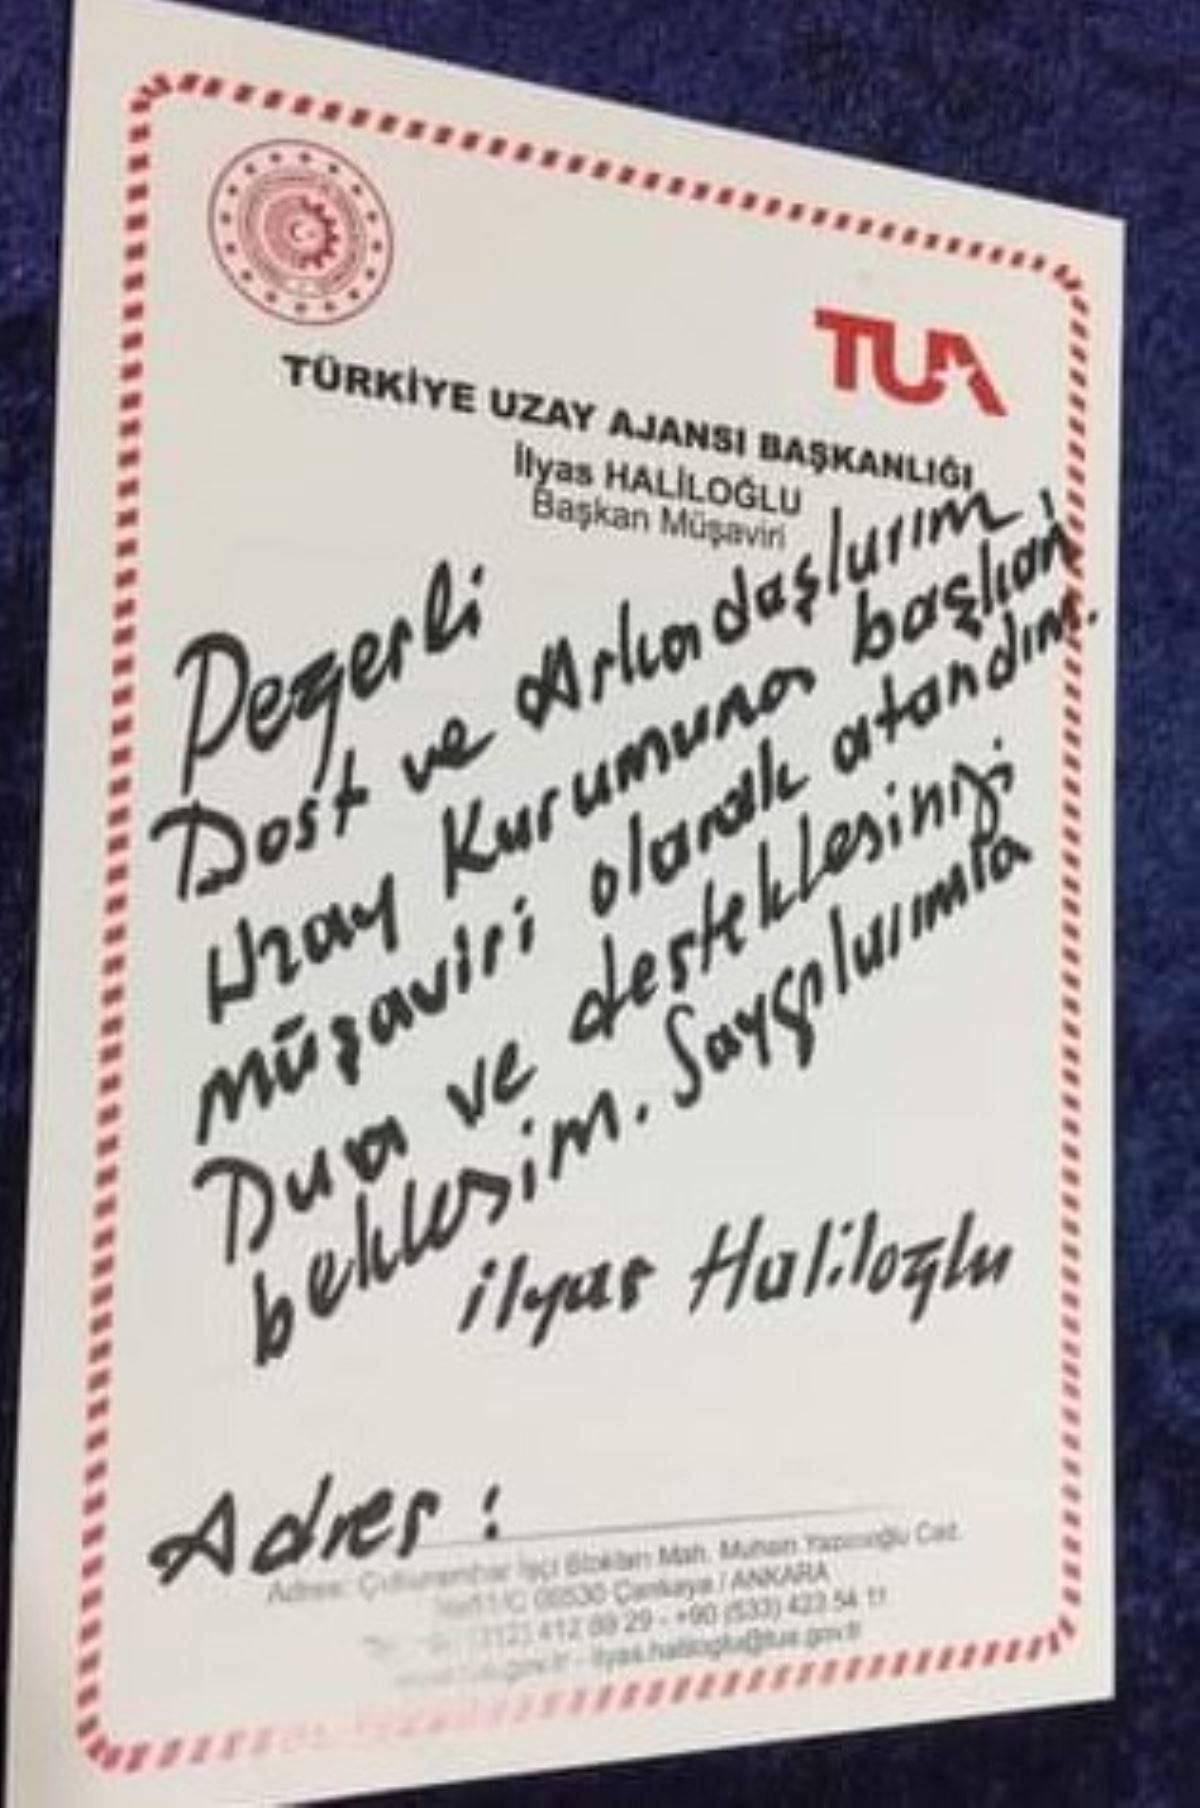 TUA
TÜRKİYE UZAY AJANSI BAŞKANLIĞI
İlyas HALİLOĞLU
Başkan Müşaviri
Değerli
Dost ve Arkadaşlarım,
Uzay Kurumuna başkan
müşaviri olarak atandım.
Dua ve desteklesinizi
beklesim. Saygılarımla
ilyas Haliloğlu
Adres :
Adres: Çukurambar İşçi Blokları Mah. Muhsin Yazıcıoğlu Cad.
06530 Çankaya / ANKARA
(312) 412 89 29 - +90 (533) 423 54 11
ilyas.haliloglu@tua.gov.tr